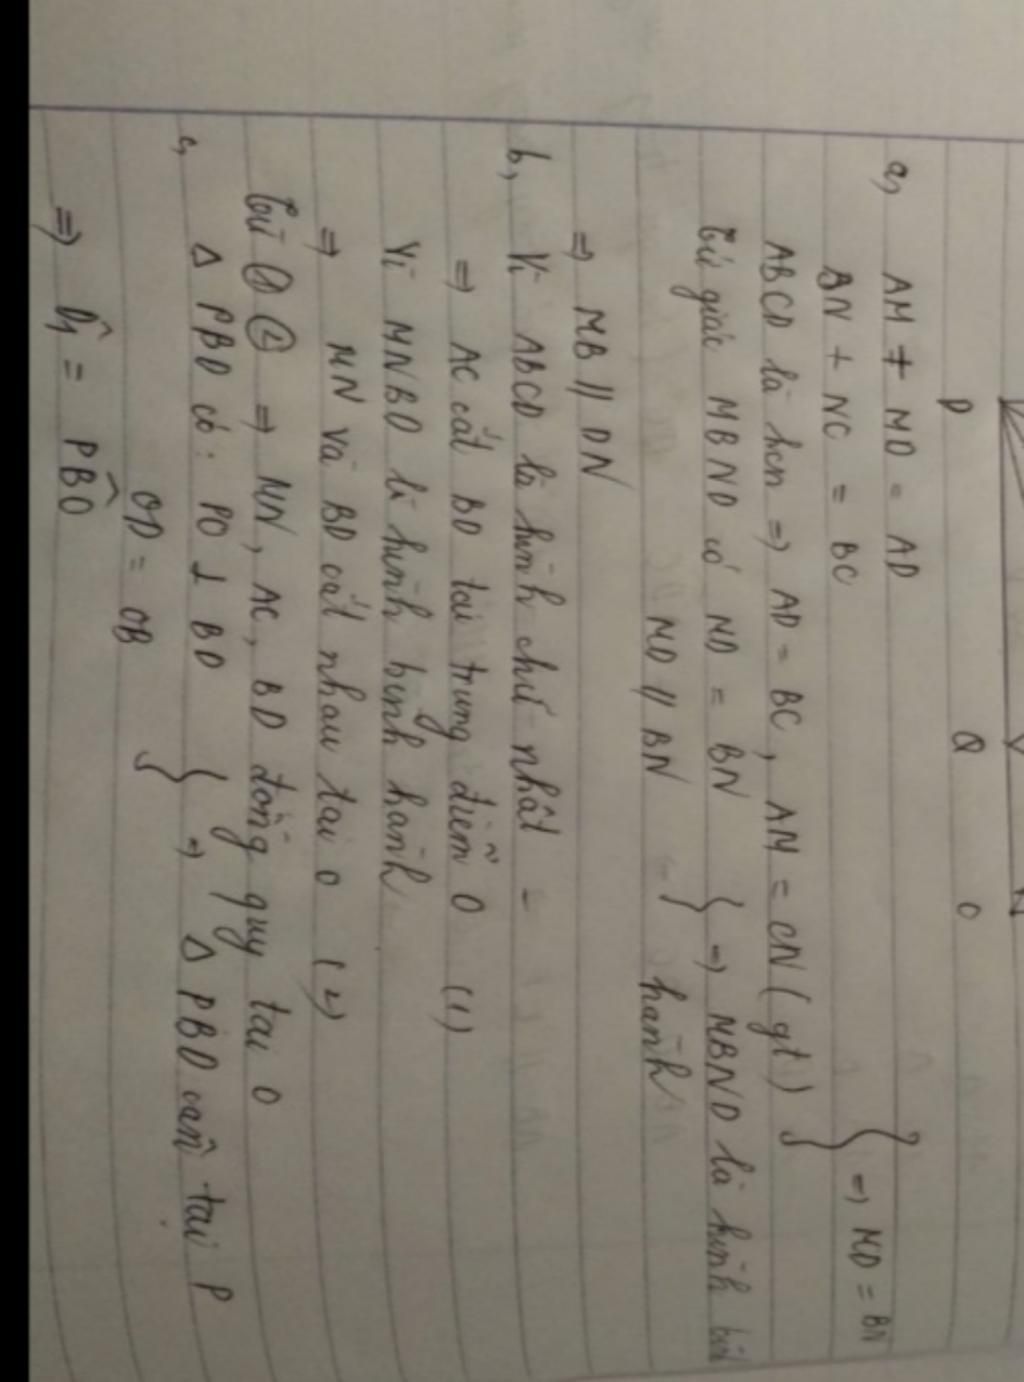 D Q C
a, AM + MD = AD
BN + NC = BC
ABCD là hcn => AD = BC, AM = CN (gt) } => MD = BN
Tứ giác MBND có MD = BN } => MBND là hình bình
MD // BN hành
=> MB // DN
b, Vì ABCD là hình chữ nhật
=> AC cắt BD tại trung điểm O (1)
Vì MNBD là hình bình hành
=> MN và BD cắt nhau tại O (2)
Từ ① ② => MN, AC, BD đồng quy tại O
c, Δ PBD có: PO ⊥ BD } => Δ PBD cân tại P
OD = OB
=> D̂₁ = PB̂O